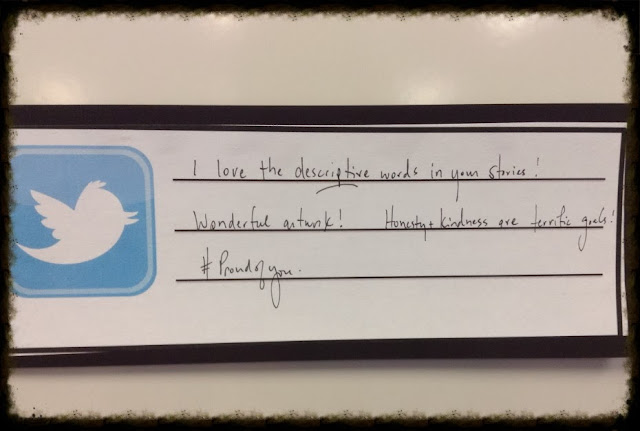 I love the descriptive words in your stories!
Wonderful artwork! Honesty + kindness are terrific goals!
# Proudofyou.